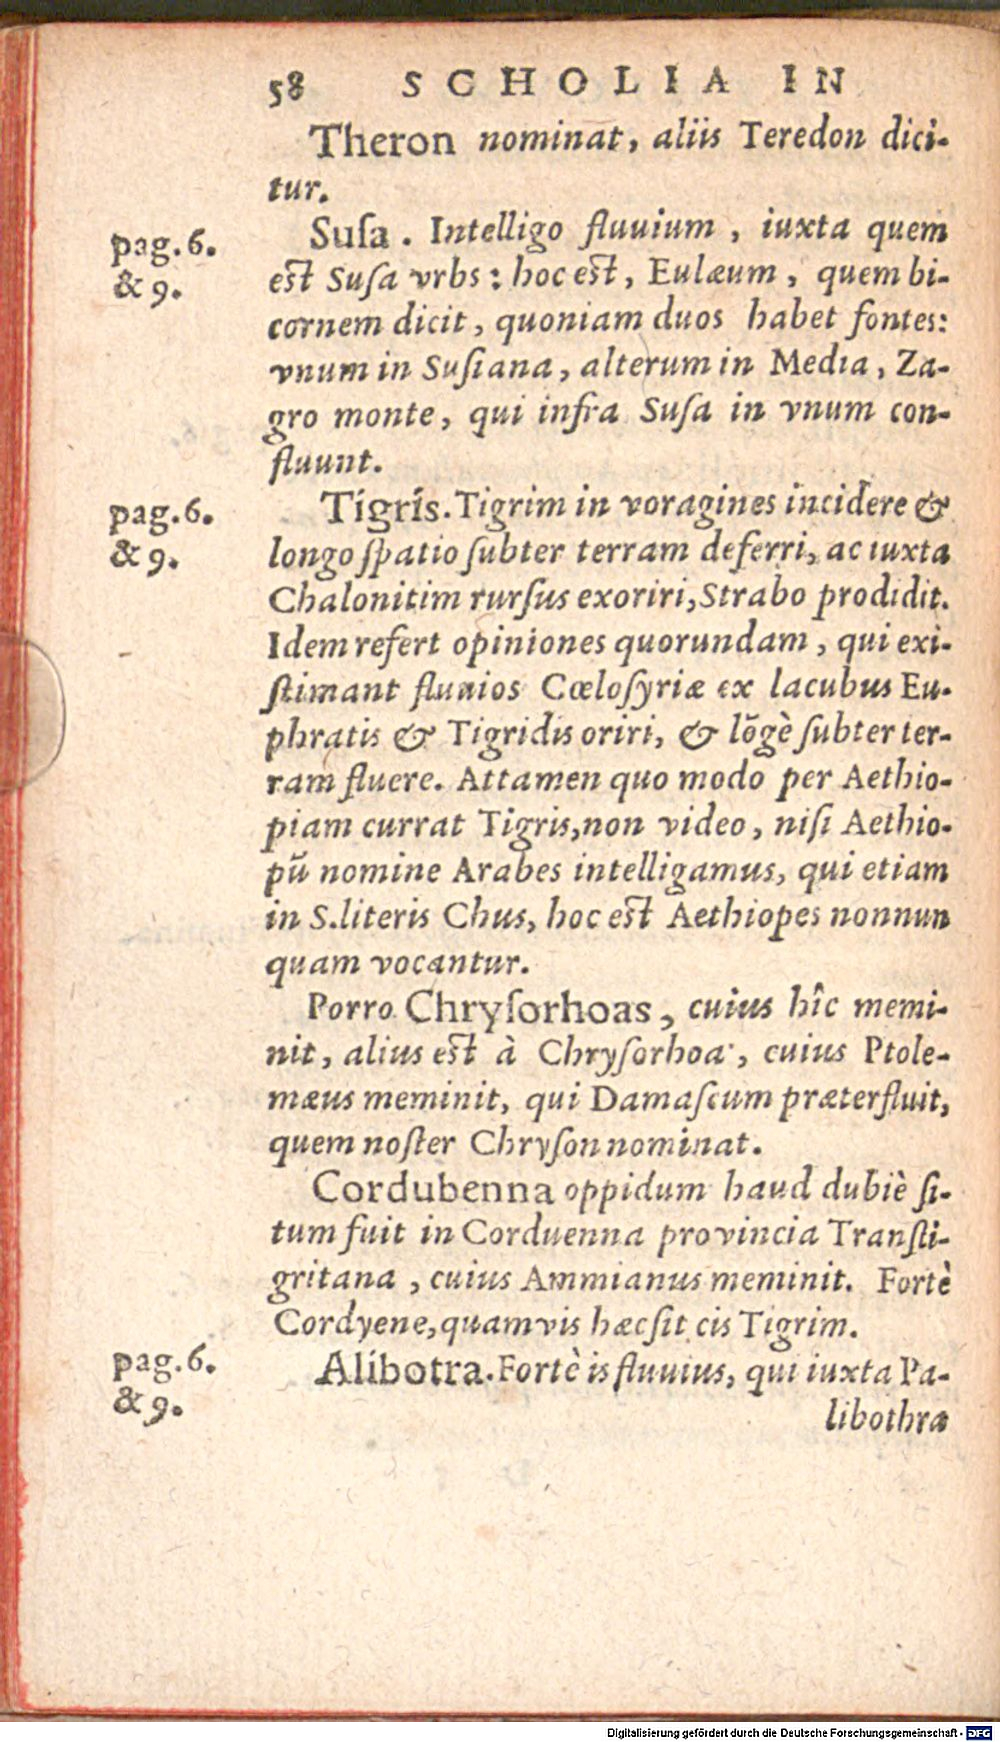 58 SCHOLIA IN
Theron nominat, aliis Teredon dici-
tur.
pag.6.
& 9.
Suſa. Intelligo fluuium, iuxta quem
eſt Suſa vrbs: hoc eſt, Eulæum, quem bi-
cornem dicit, quoniam duos habet fontes:
vnum in Suſiana, alterum in Media, Za-
gro monte, qui infra Suſa in vnum con-
fluunt.
pag.6.
& 9.
Tigris. Tigrim in voragines incidere &
longo ſpatio ſubter terram deferri, ac iuxta
Chalonitim rurſus exoriri, Strabo prodidit.
Idem refert opiniones quorundam, qui exi-
ſtimant fluuios Cœloſyriæ ex lacubus Eu-
phratis & Tigridis oriri, & lõgè ſubter ter-
ram fluere. Attamen quo modo per Aethio-
piam currat Tigris, non video, niſi Aethio-
pũ nomine Arabes intelligamus, qui etiam
in S. literis Chus, hoc eſt Aethiopes nonnun
quam vocantur.
Porro Chryſorhoas, cuius hîc memi-
nit, alius eſt à Chryſorhoa, cuius Ptole-
mæus meminit, qui Damaſcum præterfluit,
quem noſter Chryſon nominat.
Cordubenna oppidum haud dubiè ſi-
tum fuit in Corduenna provincia Tranſti-
gritana, cuius Ammianus meminit. Fortè
Cordyene, quamvis hæc ſit cis Tigrim.
pag.6.
& 9.
Alibotra. Fortè is fluuius, qui iuxta Pa-
libothra
Digitalisierung gefördert durch die Deutsche Forschungsgemeinschaft - DFG